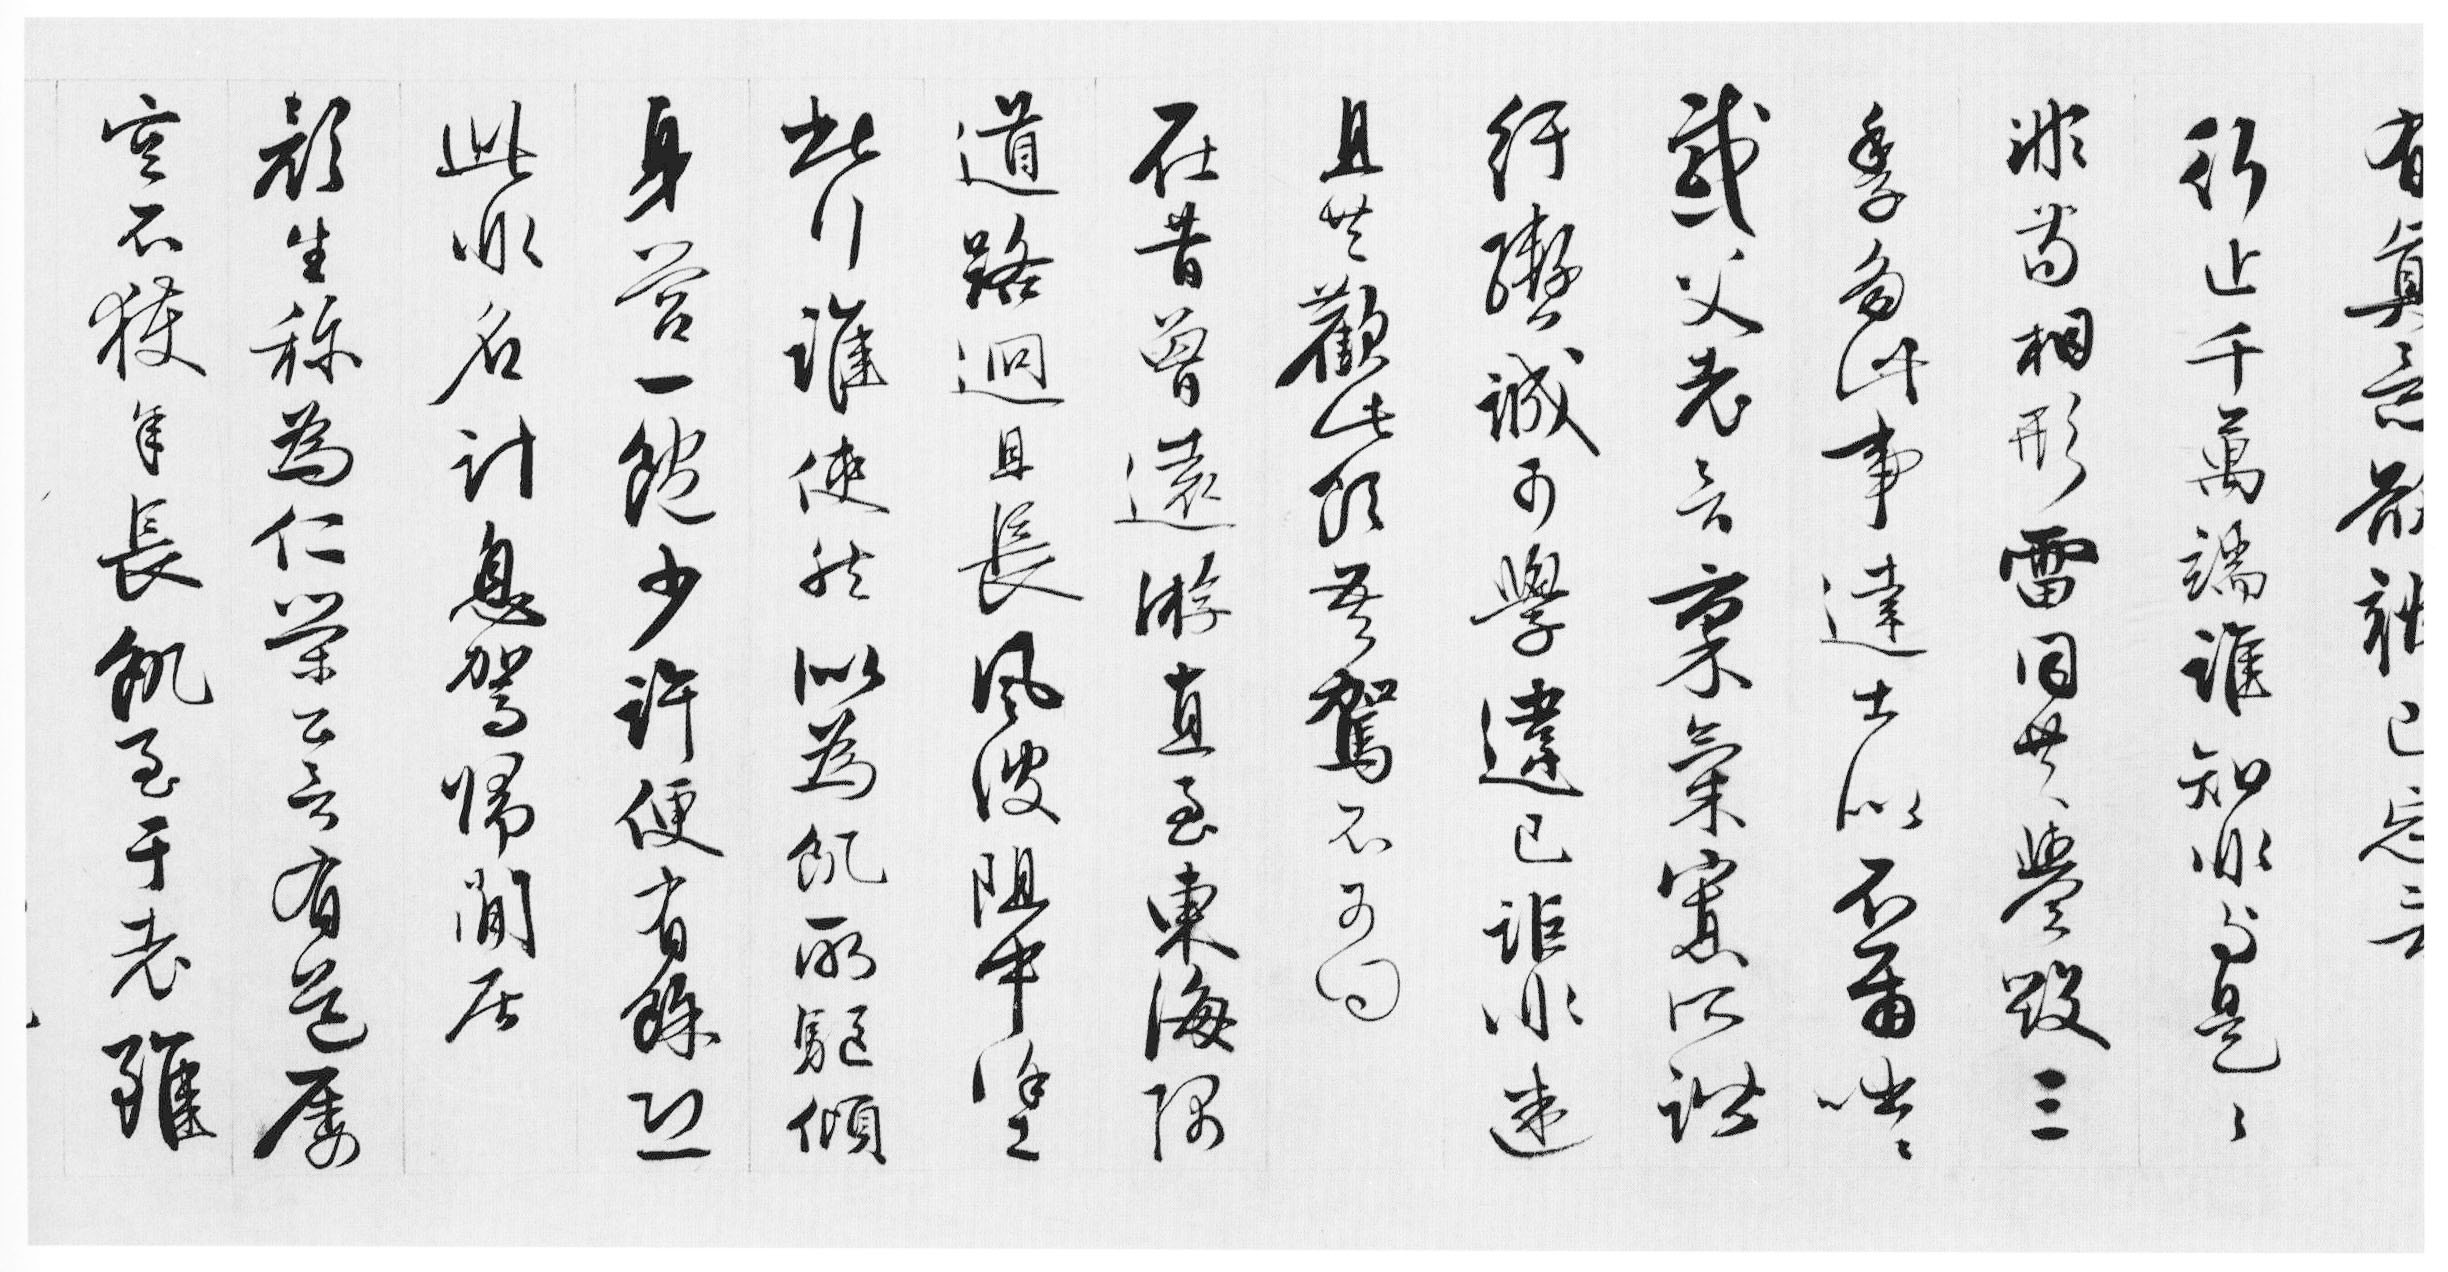 有真意欲辯已忘言
行止千萬端誰知非與是是
非苟相形雷同共譽毀三
季多此事達士似不爾咄咄
感父老言稟氣寡所諧
紆轡誠可學違己詎非迷
且共歡此飲吾駕不可回
在昔曾遠游直至東海隅
道路迥且長風波阻中塗
此行誰使然似為飢所驅傾
身營一飽少許便有餘恐
此非名計息駕歸閒居
顏生稱為仁榮公言有道屢
空不獲年長飢至于老雖